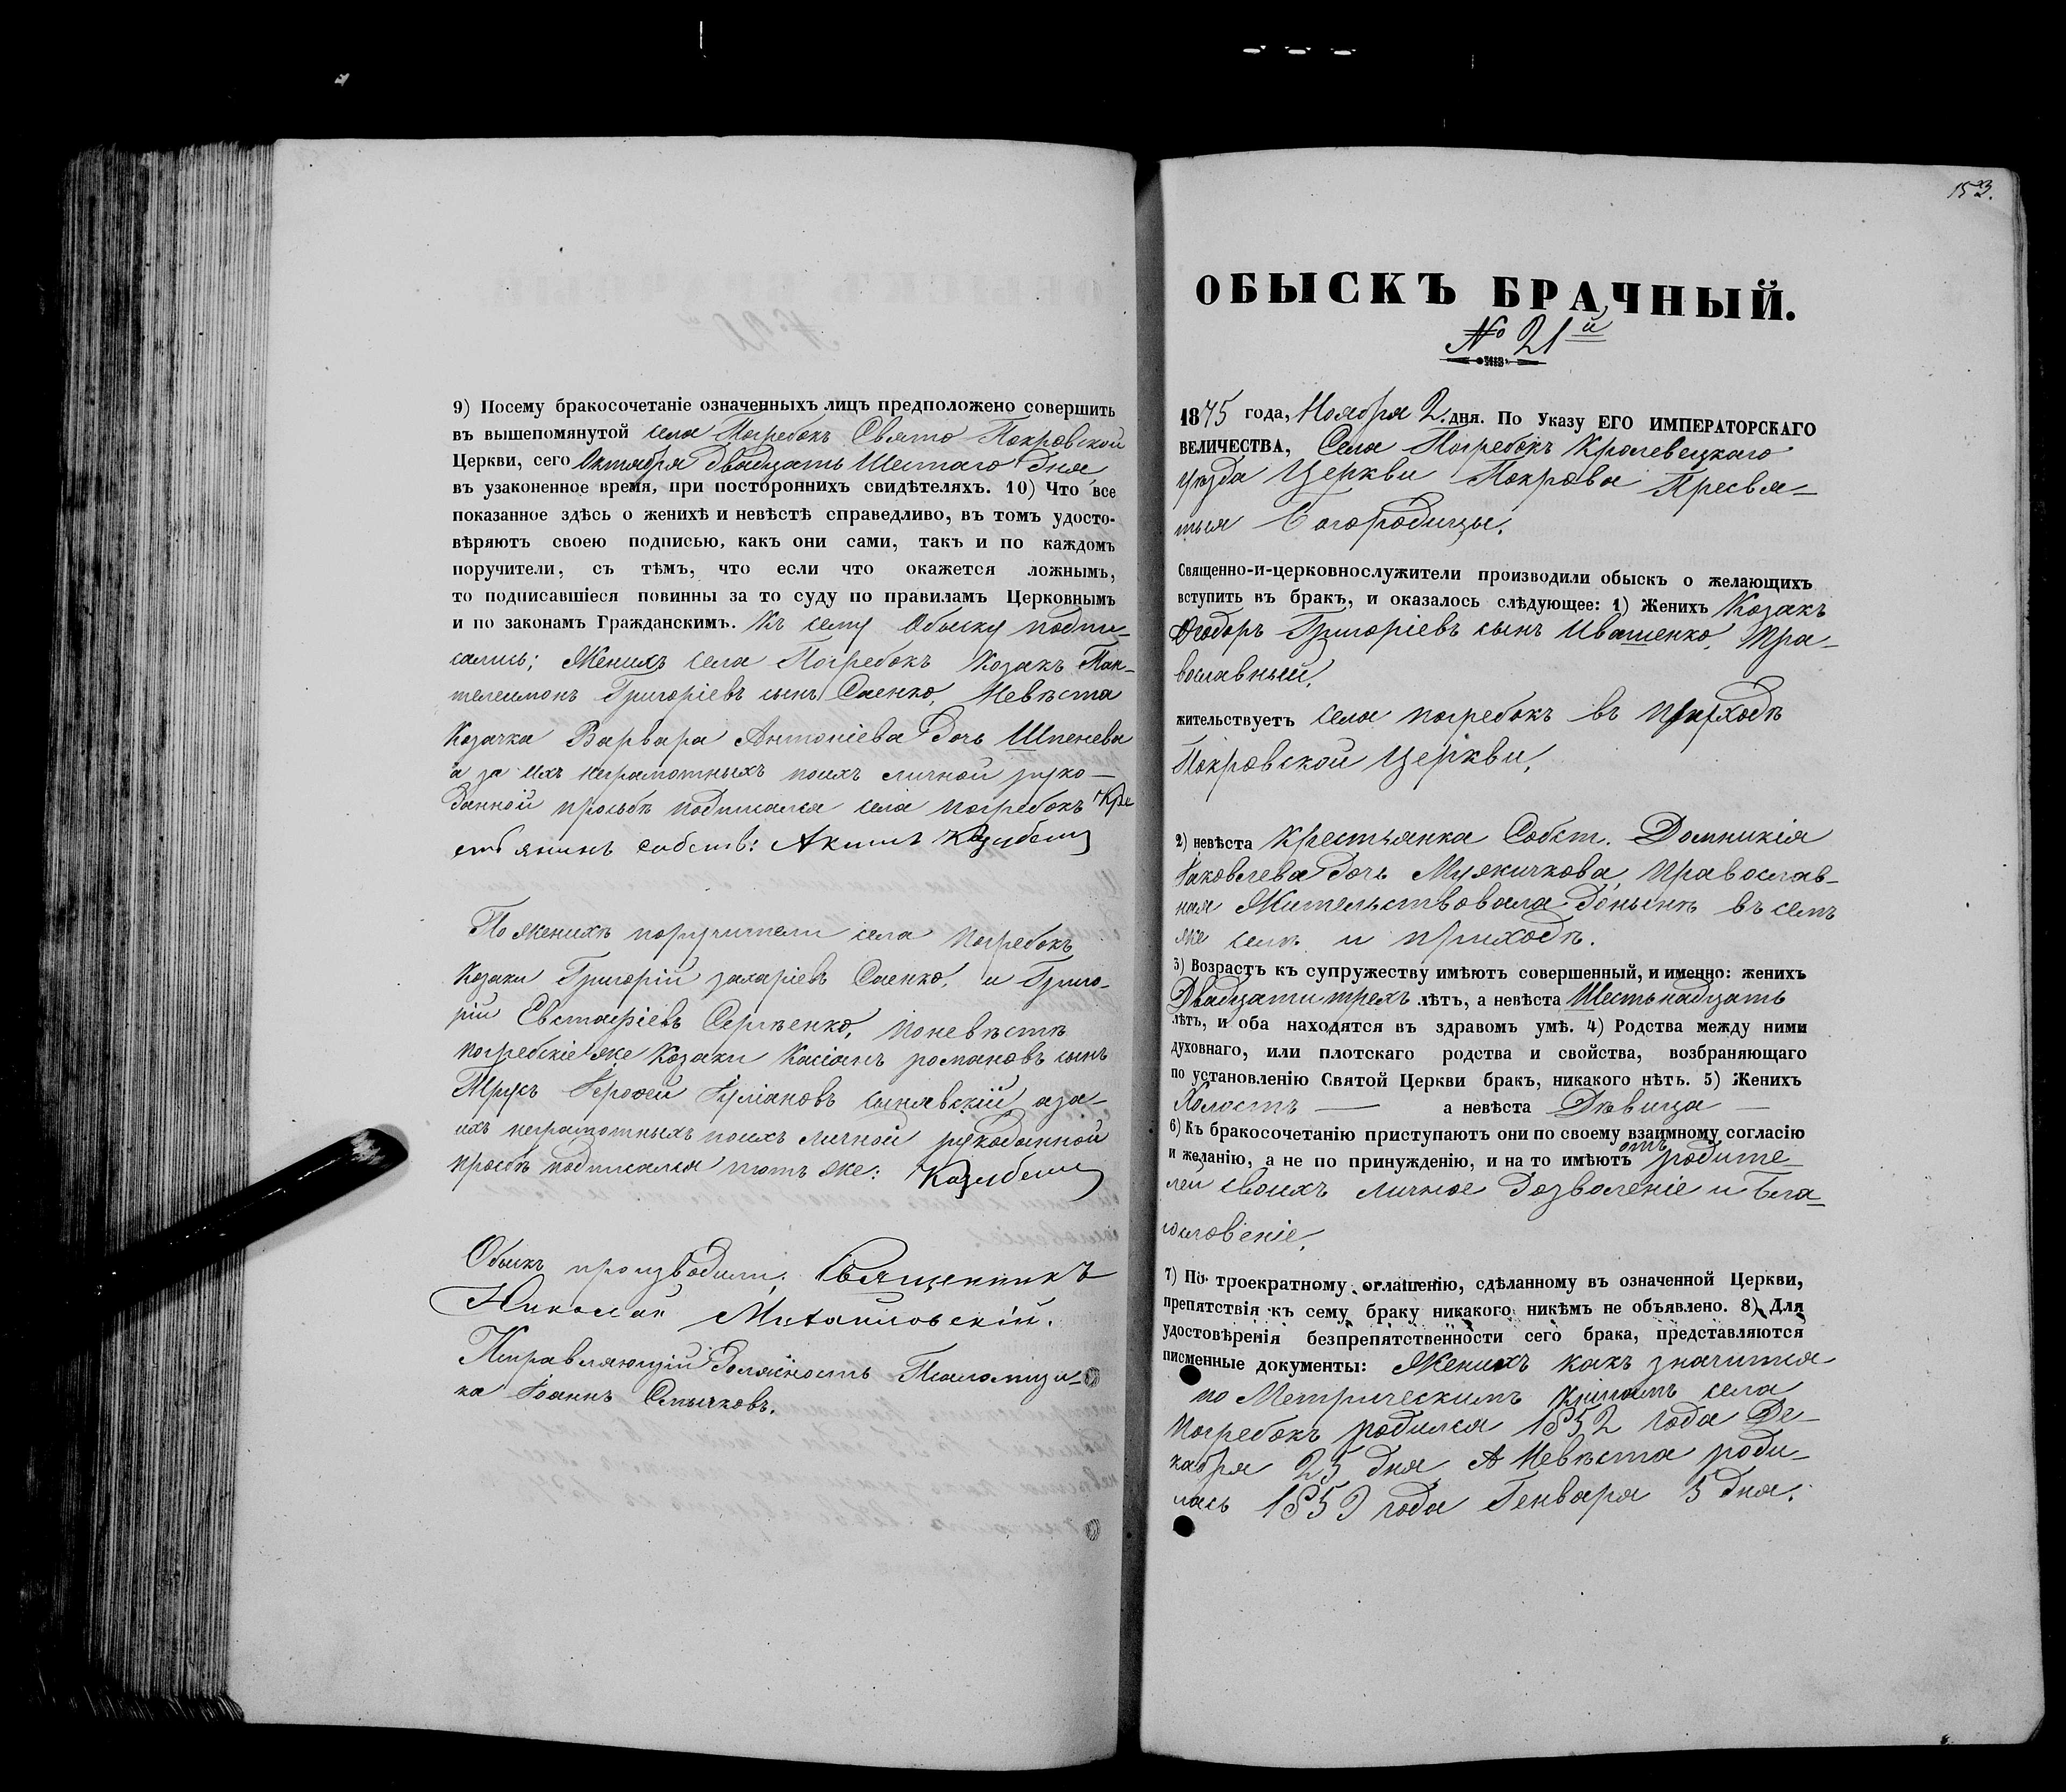 9) Посему бракосочетаніе означенныхъ лицъ предположено совершить
въ вышепомянутой села Погребокъ Свято Покровской
Церкви, сего Октября двадцать Шестаго дня
въ узаконенное время, при постороннихъ свидѣтеляхъ. 10) Что все
показанное здѣсь о женихѣ и невѣстѣ справедливо, въ томъ удосто-
вѣряютъ своею подписью, какъ они сами, такъ и по каждомъ
поручители, съ тѣмъ, что если что окажется ложнымъ,
то подписавшіеся повинны за то суду по правиламъ Церковнымъ
и по законамъ Гражданскимъ. Къ сему Обыску подпи-
сались; Женихъ села Погребокъ Козакъ Пан-
телеимонъ Григоріевъ сынъ Саенко, Невѣста
Козачка Варвара Антоніева дочь Шпенева
а за ихъ неграмотныхъ поихъ личной руко-
данной прозьбѣ подписался села погребокъ Кре
стьянинъ собств: Акимъ
По женихѣ поручители села Погребокъ
Козаки Григорій захаріевъ Саенко, и Григо-
рій Евстафіевъ Сергѣенко, поневѣстѣ
погребскіе же Козаки Касіанъ романовъ сынъ
Ерофей Іуліановъ аза-
ихъ неграмотныхъ поихъ личной рукоданной
прозбѣ подписался тотъ же:
Обыскъ производили; Священникъ
Николай Михайловскій.
Исправляющій должность Псаломщи-
ка Іоаннъ Смычковъ.
153.
ОБЫСКЪ БРАЧНЫЙ.
№ 21й
1875 года, Ноября 2. дня. По Указу ЕГО ИМПЕРАТОРСКАГО
ВЕЛИЧЕСТВА, Села Погребокъ Кролевецкаго
уѣзда Церкви Покрова Пресвя-
тыя Богородицы.
Священно-и-церковнослужители производили обыскъ о желающихъ
вступить въ бракъ, и оказалось слѣдующее: 1) Женихъ Козакъ
Ѳеодоръ Григоріевъ сынъ Ивашенко, Пра-
вославный,
жительствуетъ села погребокъ въ приходѣ
Покровской Церкви,
2) невѣста Крестьянка Собст. Домникія
Іаковлева дочь Мужичкова, Православ-
ная Жительствовала доньінѣ въ семъ
же селѣ и приходѣ.
3) Возрастъ къ супружеству имѣютъ совершенный, и именно: женихъ
Двадцати трехъ лѣтъ, а невѣста Шестьнадцать
лѣтъ, и оба находятся въ здравомъ умѣ. 4) Родства между ними
духовнаго, или плотскаго родства и свойства, возбраняющаго
по установленію Святой Церкви бракъ, никакого нѣтъ. 5) Женихъ
Холостъ — а невѣста Дѣвица —
6) Къ бракосочетанію приступаютъ они по своему взаимному согласію
и желанію, а не по принужденію, и на то имѣютъ отъ родите-
лей своихъ личное дозволеніе и бла-
гословеніе.
7) По троекратному оглашенію, сдѣланному въ означенной Церкви,
препятствія къ сему браку никакого никѣмъ не объявлено. 8) Для
удостовѣренія безпрепятственности сего брака, представляются
писменные документы: Женихъ какъ значится
по Метрическимъ книгамъ села
Погребокъ родился 1852 года Де-
кабря 25 дня, А Невѣста роди-
лась 1859 года Генваря 5 дня.